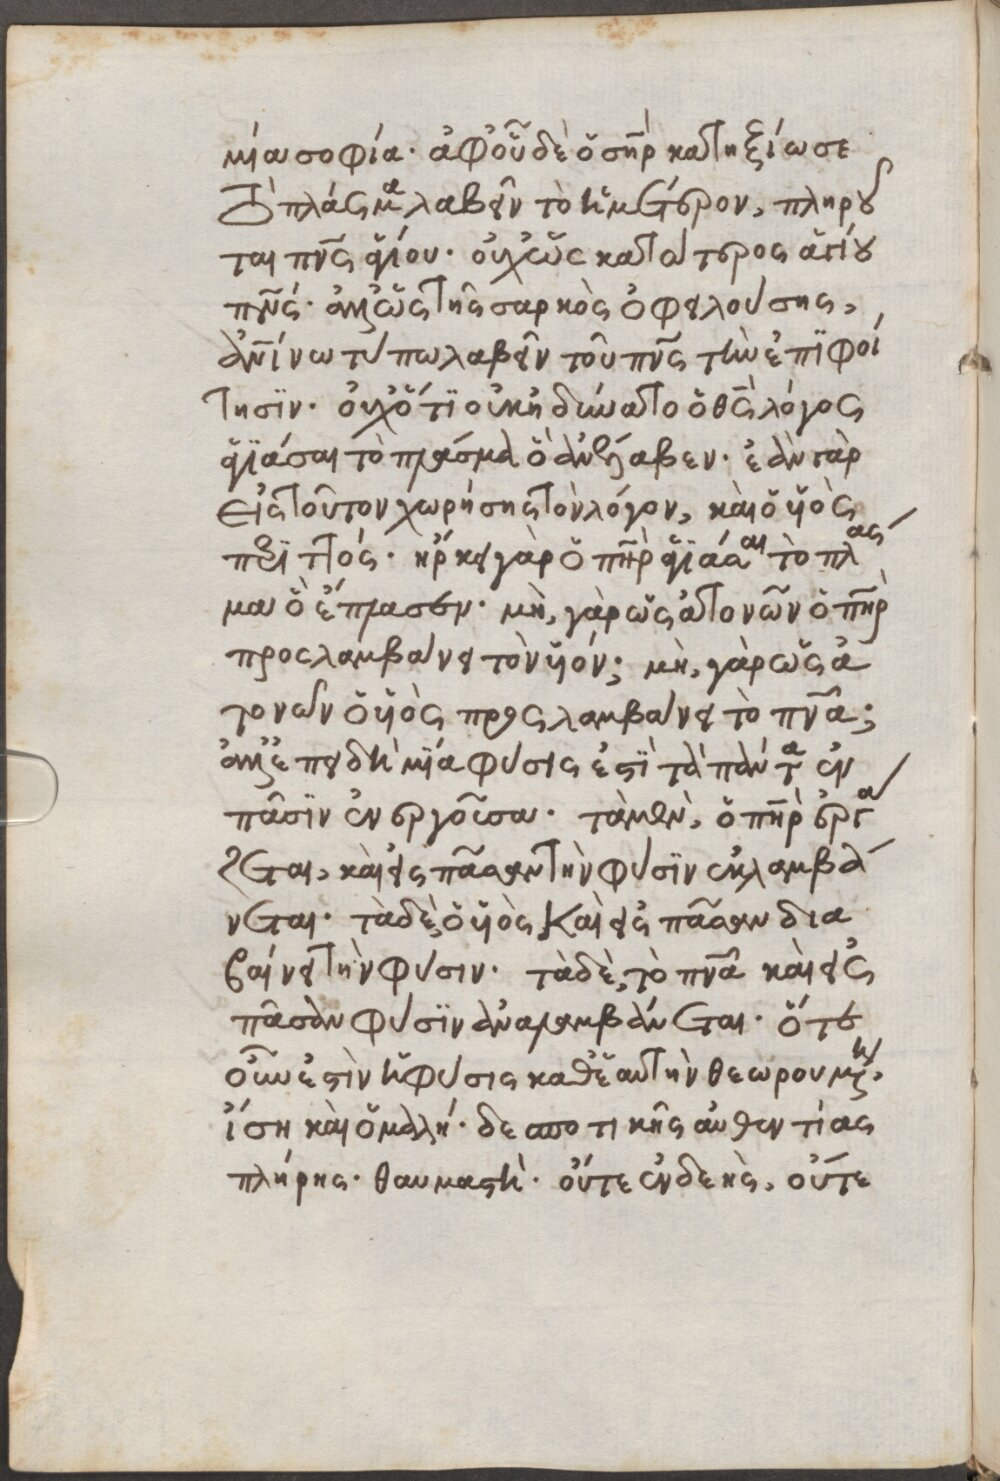 μία σοφία· ἀφ' οὗ δὲ ὁ σηρ κατηξίωσε
τὸ πλάσμα λαβεῖν τὸ ἡμέτερον, πληροῦ
ται πνς ἁγίου· οὐχ ὡς κατώτερος ἁγίου
πνς· ἀλλ' ὡς τῆς σαρκὸς ὀφειλούσης,
λαβεῖν τοῦ πνς τὴν ἐπιφοί
τησιν· οὐχ ὅτι οὐκ ἠδύνατο ὁ θς λόγος
ἁγιάσαι τὸ πλάσμα ὃ ἀνέλαβεν· ἐὰν γὰρ
εἰς τοῦτον χωρήσης τὸν λόγον, καὶ ὁ υἱὸς
περιττός· ἤρκει γὰρ ὁ πηρ ἁγιάσαι τὸ πλάσ
μα ὃ ἔπλασεν· μὴ, γὰρ ὡς ἀτονῶν ὁ πηρ
προσλαμβάνει τὸν υἱόν; μὴ, γὰρ ὡς ἀ
τονῶν ὁ υἱὸς προσλαμβάνει τὸ πνα;
ἀλλ' ἐπειδὴ μία φύσις ἐστὶ τὰ πάντα ἐν
πᾶσιν ἐνεργοῦσα· τὰ μὲν, ὁ πηρ ἐργά
ζεται, καὶ εἰς πᾶσαν τὴν φύσιν ἐκλαμβά
νεται· τὰ δὲ, ὁ υἱὸς, καὶ εἰς πᾶσαν δια
βαίνει τὴν φύσιν· τὰ δὲ, τὸ πνα καὶ εἰς
πᾶσαν φύσιν ἀναλαμβάνεται· ὅτε
οὖν ἐστὶν ἡ φύσις καθ' ἑαυτὴν θεωρουμένη,
ἴση καὶ ὁμαλή· δεσποτικῆς αὐθεντίας
πλήρης· θαυμαστὴ· οὔτε ἐνδεὴς, οὔτε